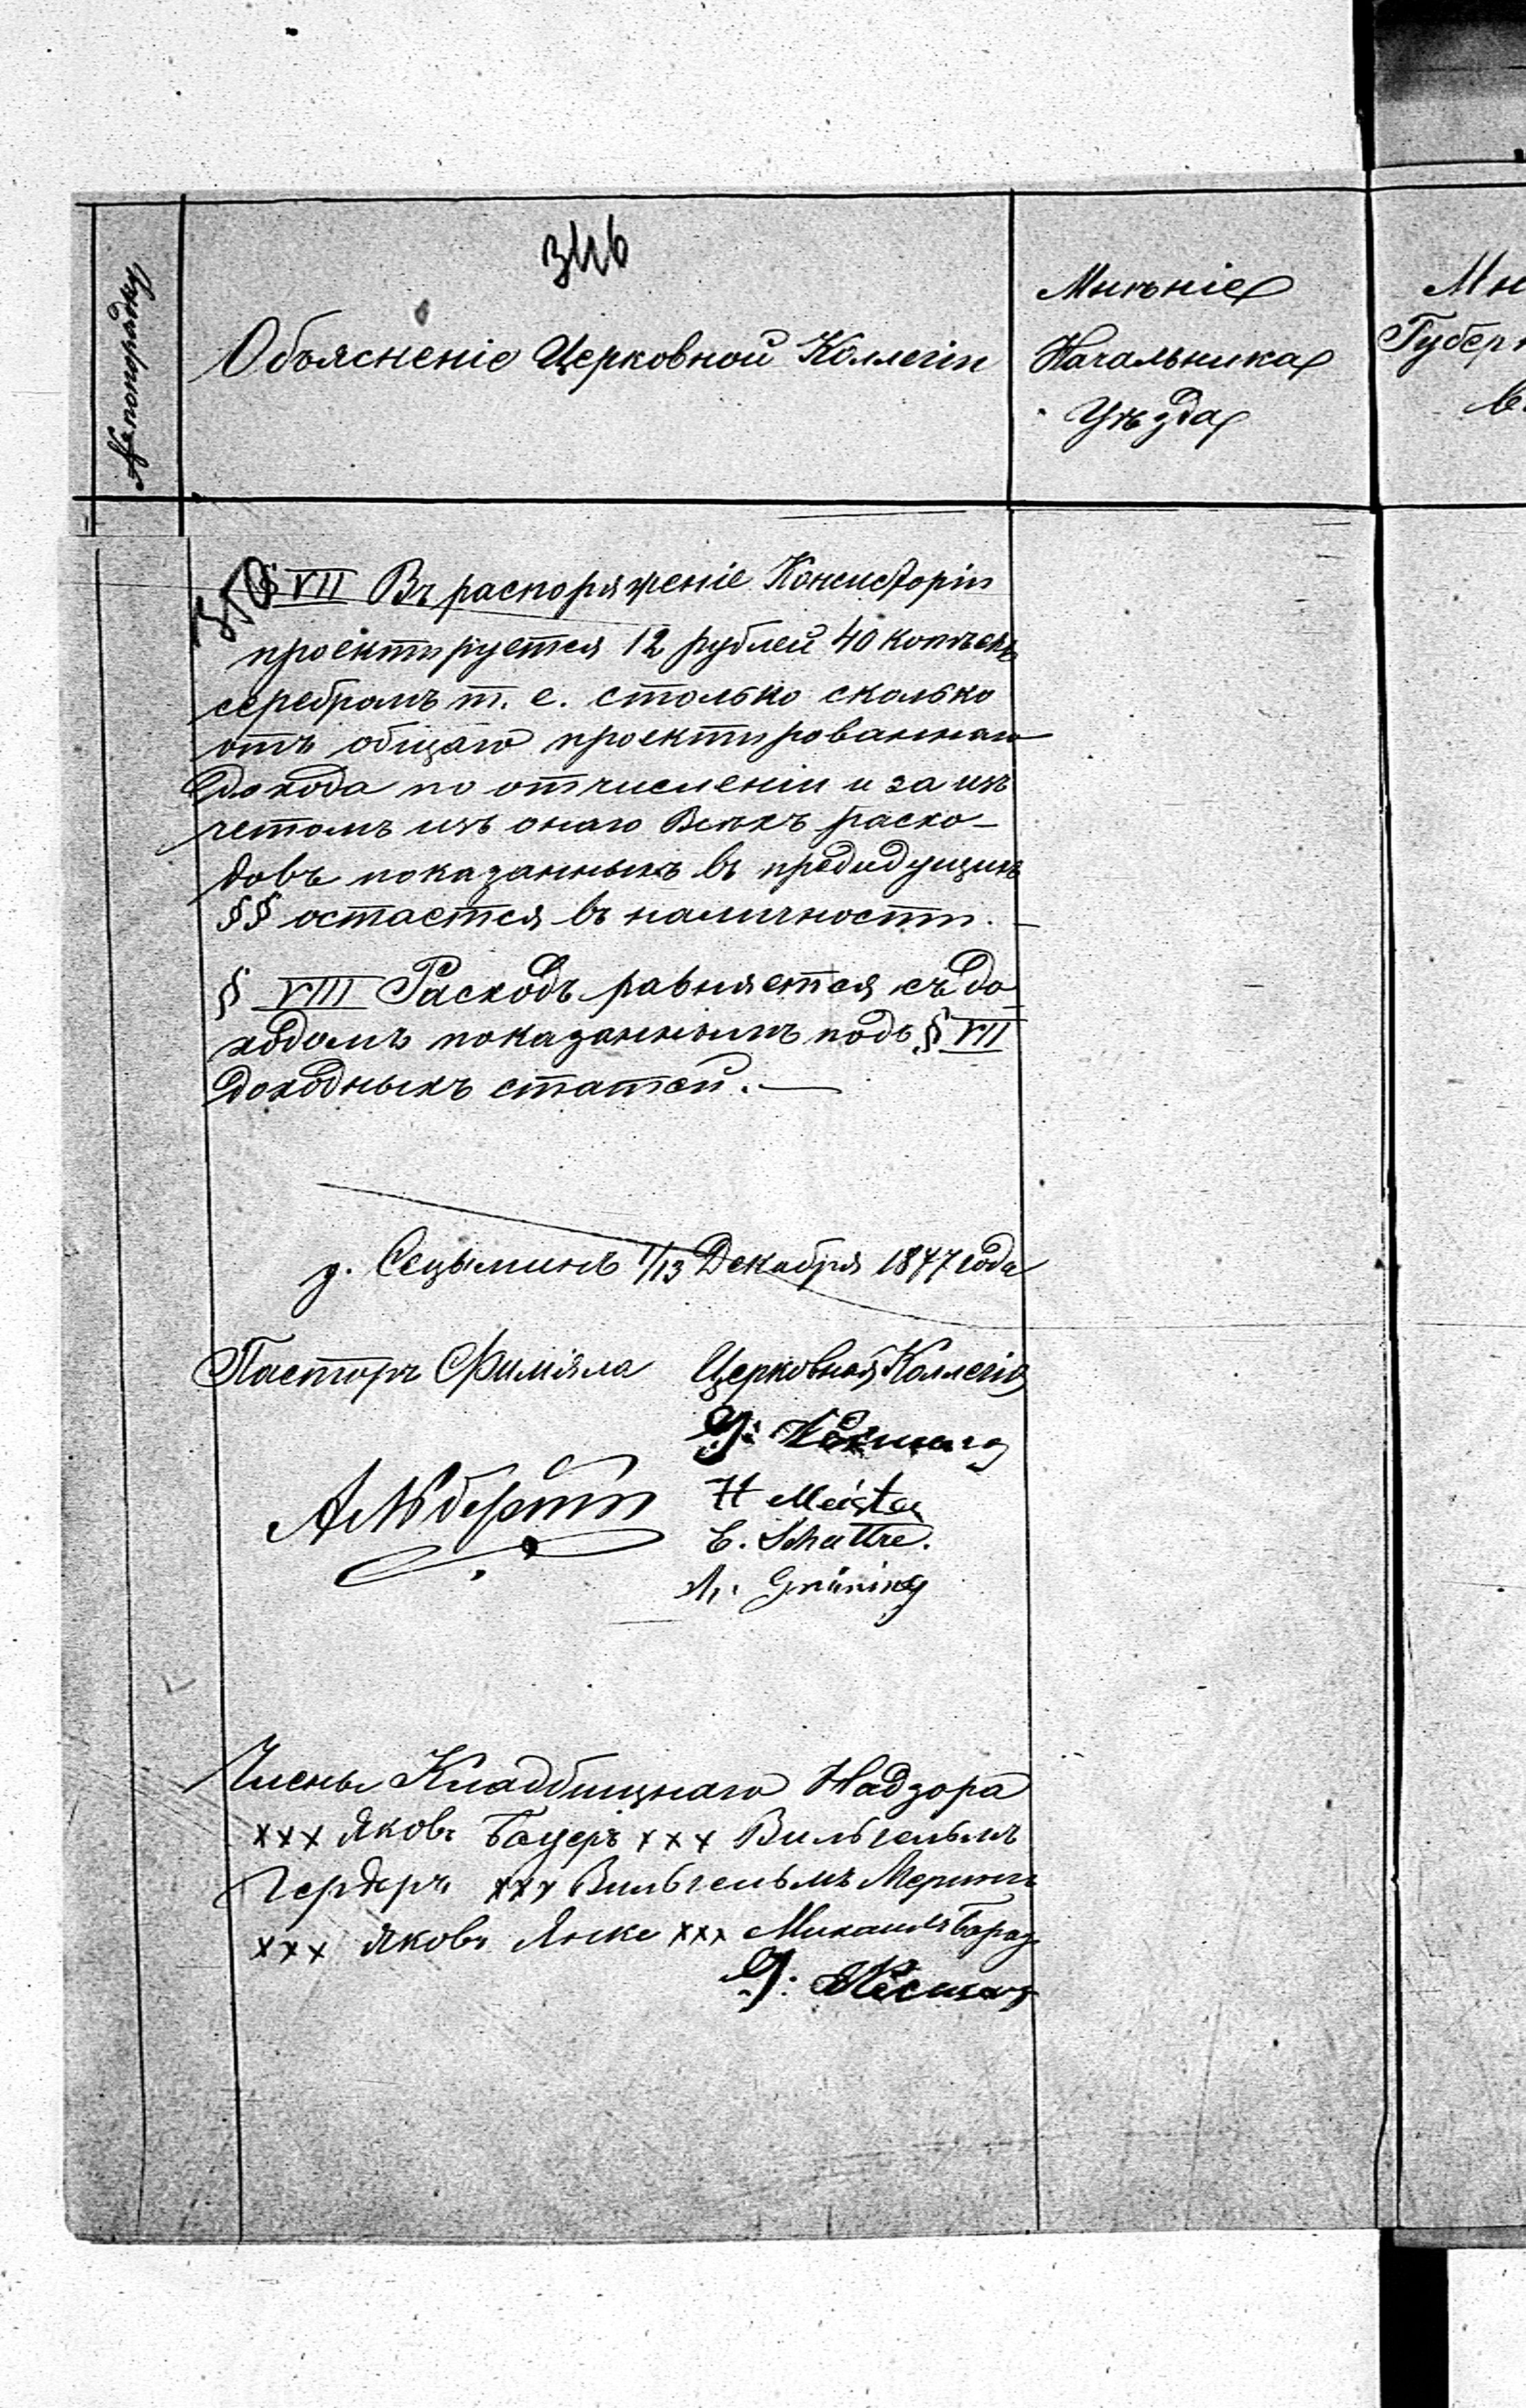 346
№ по порядку
Объясненіе Церковной Коллегіи
Мнѣніе
Начальника
Уѣзда
Мн
Губерн
350
§ VII Въ распоряженіе Консисторіи
проектируется 12 рублей 40 копѣекъ
серебромъ т. е. столько сколько
отъ общаго проектированнаго
дохода по отчисленіи и за изъ
четомъ изъ онаго Всѣхъ расхо-
довъ показанныхъ въ предидущихъ
§§ остается въ наличности. —
§ VIII Расходъ равняется съ до
ходомъ показаннымъ подъ § VII
доходныхъ статей. —
д. Сецыминъ 1/13 Декабря 1877 года
Пасторъ Филіяла Церковная Коллегія
H Meister
E. Schattre.
A. Grüning
Члены Кладбищнаго Надзора
xxx Яковъ Бауеръ xxx Вильгельмъ
Гердеръ xxx Вильгельмъ Мерингъ
xxx Яковъ Янке xxx Михаилъ